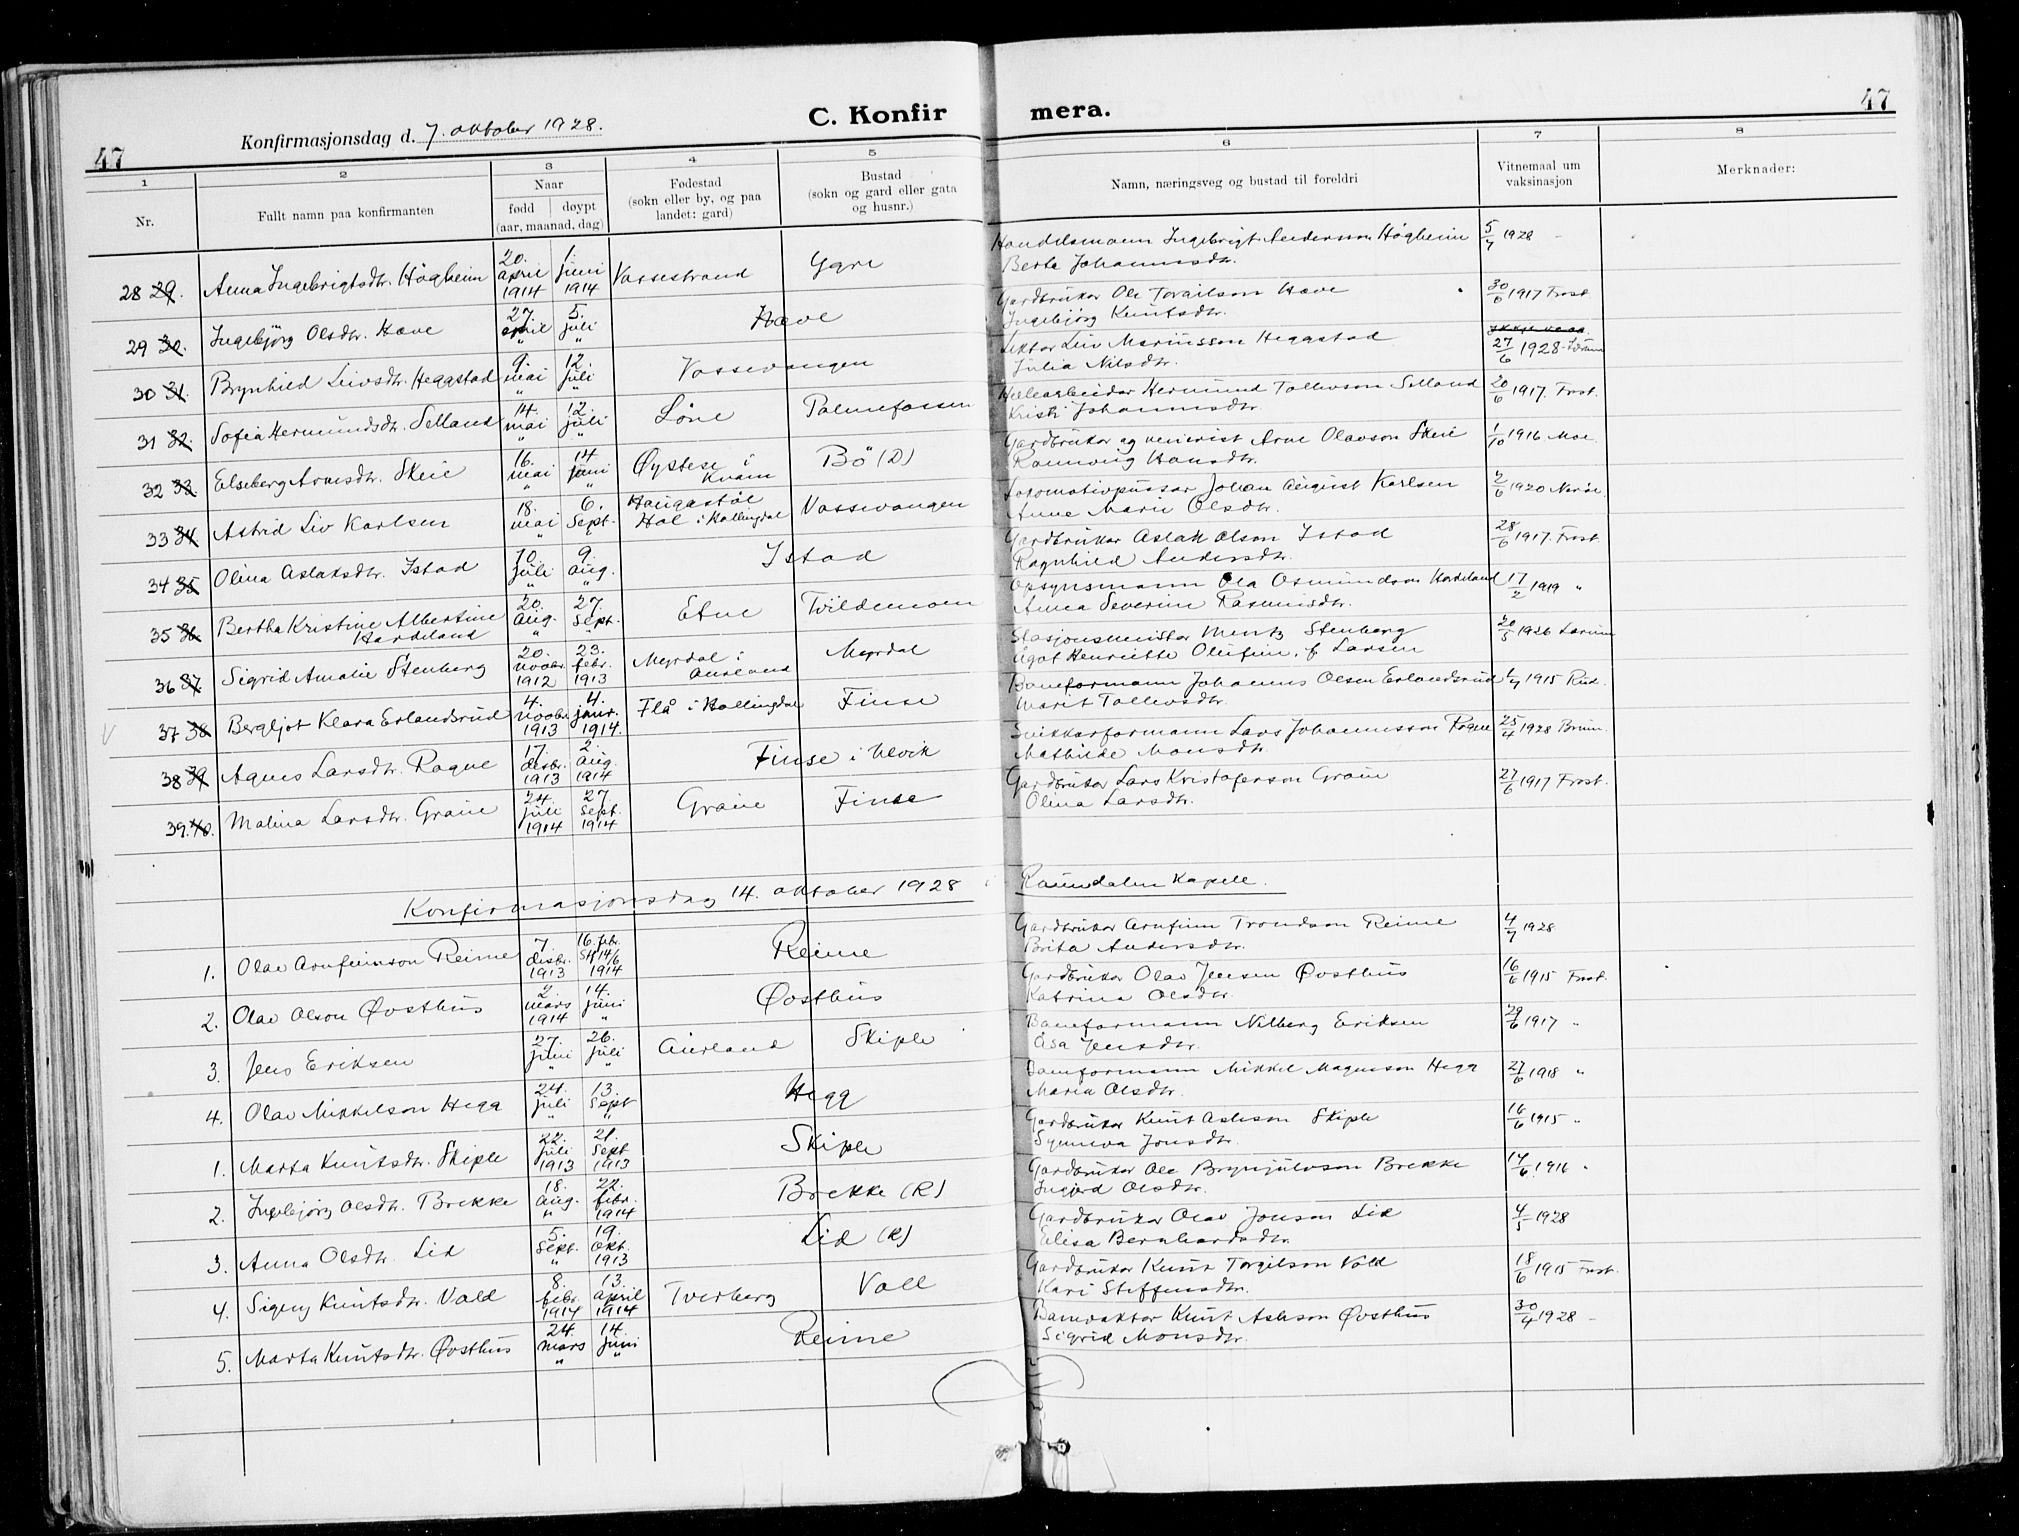 47
Konfirmasjonsdag d. 7. oktober 1928.
C. Konfir mera.
47
1 2 3 4 5 6 7 8
Nr.
Fullt namn paa konfirmanten
Naar
fødd døypt
(aar, maanad, dag)
Fødestad
(sokn eller by, og paa
landet: gard)
Bustad
(sokn og gard eller gata
og husnr.)
Namn, næringsveg og bustad til foreldri
Vitnemaal um
vaksinasjon
Merknader:
28 29. Anna Ingebrigtsdtr. Høgheim 20. april 1914 1. juni 1914 Vossestrand Ygre Handelsmann Ingebrigt Anderson Høgheim 5/7 1928
Berta Johannesdtr.
29 30. Ingebjörg Olsdtr. Hæve 27. april " 5. juli " Hæve Gardbrukar Ole Torgilson Hæve 30/6 1917 Frost.
Ingebjørg Knutsdtr.
30 31. Brynhild Leivsdtr. Heggstad 9. mai " 12. juli " Vossevangen Lektor Leiv Mariusson Heggstad 27/6 1928
Julia Nilsdtr.
31 32. Sofia Hermundsdtr. Selland 14. mai " 12. juli " Löne Palmefossen Hellearbeidar Hermund Tollevson Selland 20/6 1917. Frost.
Kristi Johannesdtr.
32 33. Elseberg Arnesdtr. Skeie 16. mai " 14 juni " Øystese i Kvam Bö (D) Gardbrukar og Arne Olavson Skeie 1/10 1916 Moe.
Rannveig Hansdtr.
33 34 Astrid Liv Karlsen 18. mai " 6. Sept. Haugastöl Hol i Hallingdal Vossevangen Lokomotivpussar Johan August Karlsen 2/6 1920
Anne Marie Olsdtr.
34 35 Olina Aslaksdtr. Istad 10. juli " 9. aug. " Istad Gardbrukar Aslak Olson Istad 28/6 1917. Frost.
Ragnhild Andersdtr.
35 36. Bertha Kristine Albertine Hardeland 20. aug. " 27. sept. " Etne Tvildemoen Opsynsmann Ola Osmundson Hardeland 17/2 1919 "
Anna Severine Rasmusdtr.
36 37 Sigrid Amalie Stenberg 20. novbr. 1912 23. febr. 1913 Myrdal i Aurland Myrdal Stasjonsmeister Mentz Stenberg 20/5 1926
Ågot Henriette Olufine, f. Larsen
37 38 Bergljot Klara Erlandsrud 4. novbr. 1913 4. janr. 1914. Flå i Hallingdal Finse Baneformann Johannes Olsen Erlandsrud 1915 Rud.
Marit Tollevsdtr.
38 39 Agnes Larsdtr. Rogne 17. desbr. 1913 2. aug. 1914 Finse i Ulvik Snikkarformann Lars Johannesson Rogne 25/4 1928
Mathilde Monsdtr.
39. 40. Malina Larsdtr. Graue 24. juli 1914 27. sept. 1914 Graue Finse Gardbrukar Lars Kristoferson Graue 27/6 1917 Frost.
Olina Larsdtr.
Konfirmasjonsdag 14. oktober 1928 i Raundalen Kapell.
1. Olav Arnfinnson Reime 7. desbr. 1913 16. febr. 14/6 1914 Reime Gardbrukar Arnfinn Trondson Reime 4/7 1928
Brita Andersdtr.
2. Olav Olson Øvsthus 2. mars 1914 14. juni " Øvsthus Gardbrukar Olav Jensen Øvsthus 16/6 1915 Frost.
Katrina Olsdtr.
3. Jens Eriksen 27. juni " 26. juli " Aurland Skiple Baneformann Nilberg Eriksen 29/6 1917 "
Åsa Jensdtr.
4. Olav Mikkelson Hegg 24. juli " 13. Sept " Hegg Baneformann Mikkel Magneson Hegg 27/6 1918 "
Maria Olsdtr.
1. Marta Knutsdtr. Skiple 22. juli 1913 21. sept 1913 Skiple Gardbrukar Knut Asleson Skiple 16/6 1915 "
Synneva Jonsdtr.
2. Ingebjørg Olsdtr. Brekke 18. aug. " 22. febr. 1914 Brekke (R) Gardbrukar Ole Brynjulvson Brekke 14/6 1916 "
Ingjerd Olsdtr.
3. Anna Olsdtr. Lid 5. Sept. " 19. okt. 1913 Lid (R) Gardbrukar Olav Jonson Lid 4/5 1928
Elisa Bernhardsdtr.
4. Signy Knutsdtr. Vold 8. febr. 1914 13. april 1914 Tverberg Voll Gardbrukar Knut Torgilson Vold 18/6 1915 Frost.
Kari Steffensdtr.
5. Marta Knutsdtr. Øvsthus 24. mars " 14. juni " Reime Banevaktar Knut Asleson Øvsthus 30/4 1928
Sigrid Monsdtr.